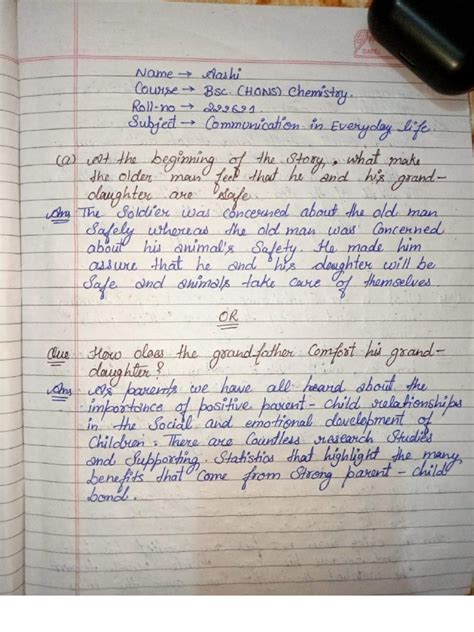 Name → Aashi
Course → Bsc. (HONS) Chemistry.
Roll-no → 222621
Subject → Communication in Everyday life
(a) At the beginning of the story, what make
the older man feel that he and his grand-
daughter are safe.
Ans The Soldier was concerned about the old man
Safely whereas the old man was Concerned
about his animal's Safety. He made him
assure that he and his daughter will be
Safe and animals take care of themselves
OR
Que How does the grandfather Comfort his grand-
daughter?
Ans As parents we have all heard about the
importance of positive parent - child relationships
in the Social and emotional development of
Children. There are Countless research Studies
and Supporting. Statistics that highlight the many
benefits that Come from Strong parent - child
bond.